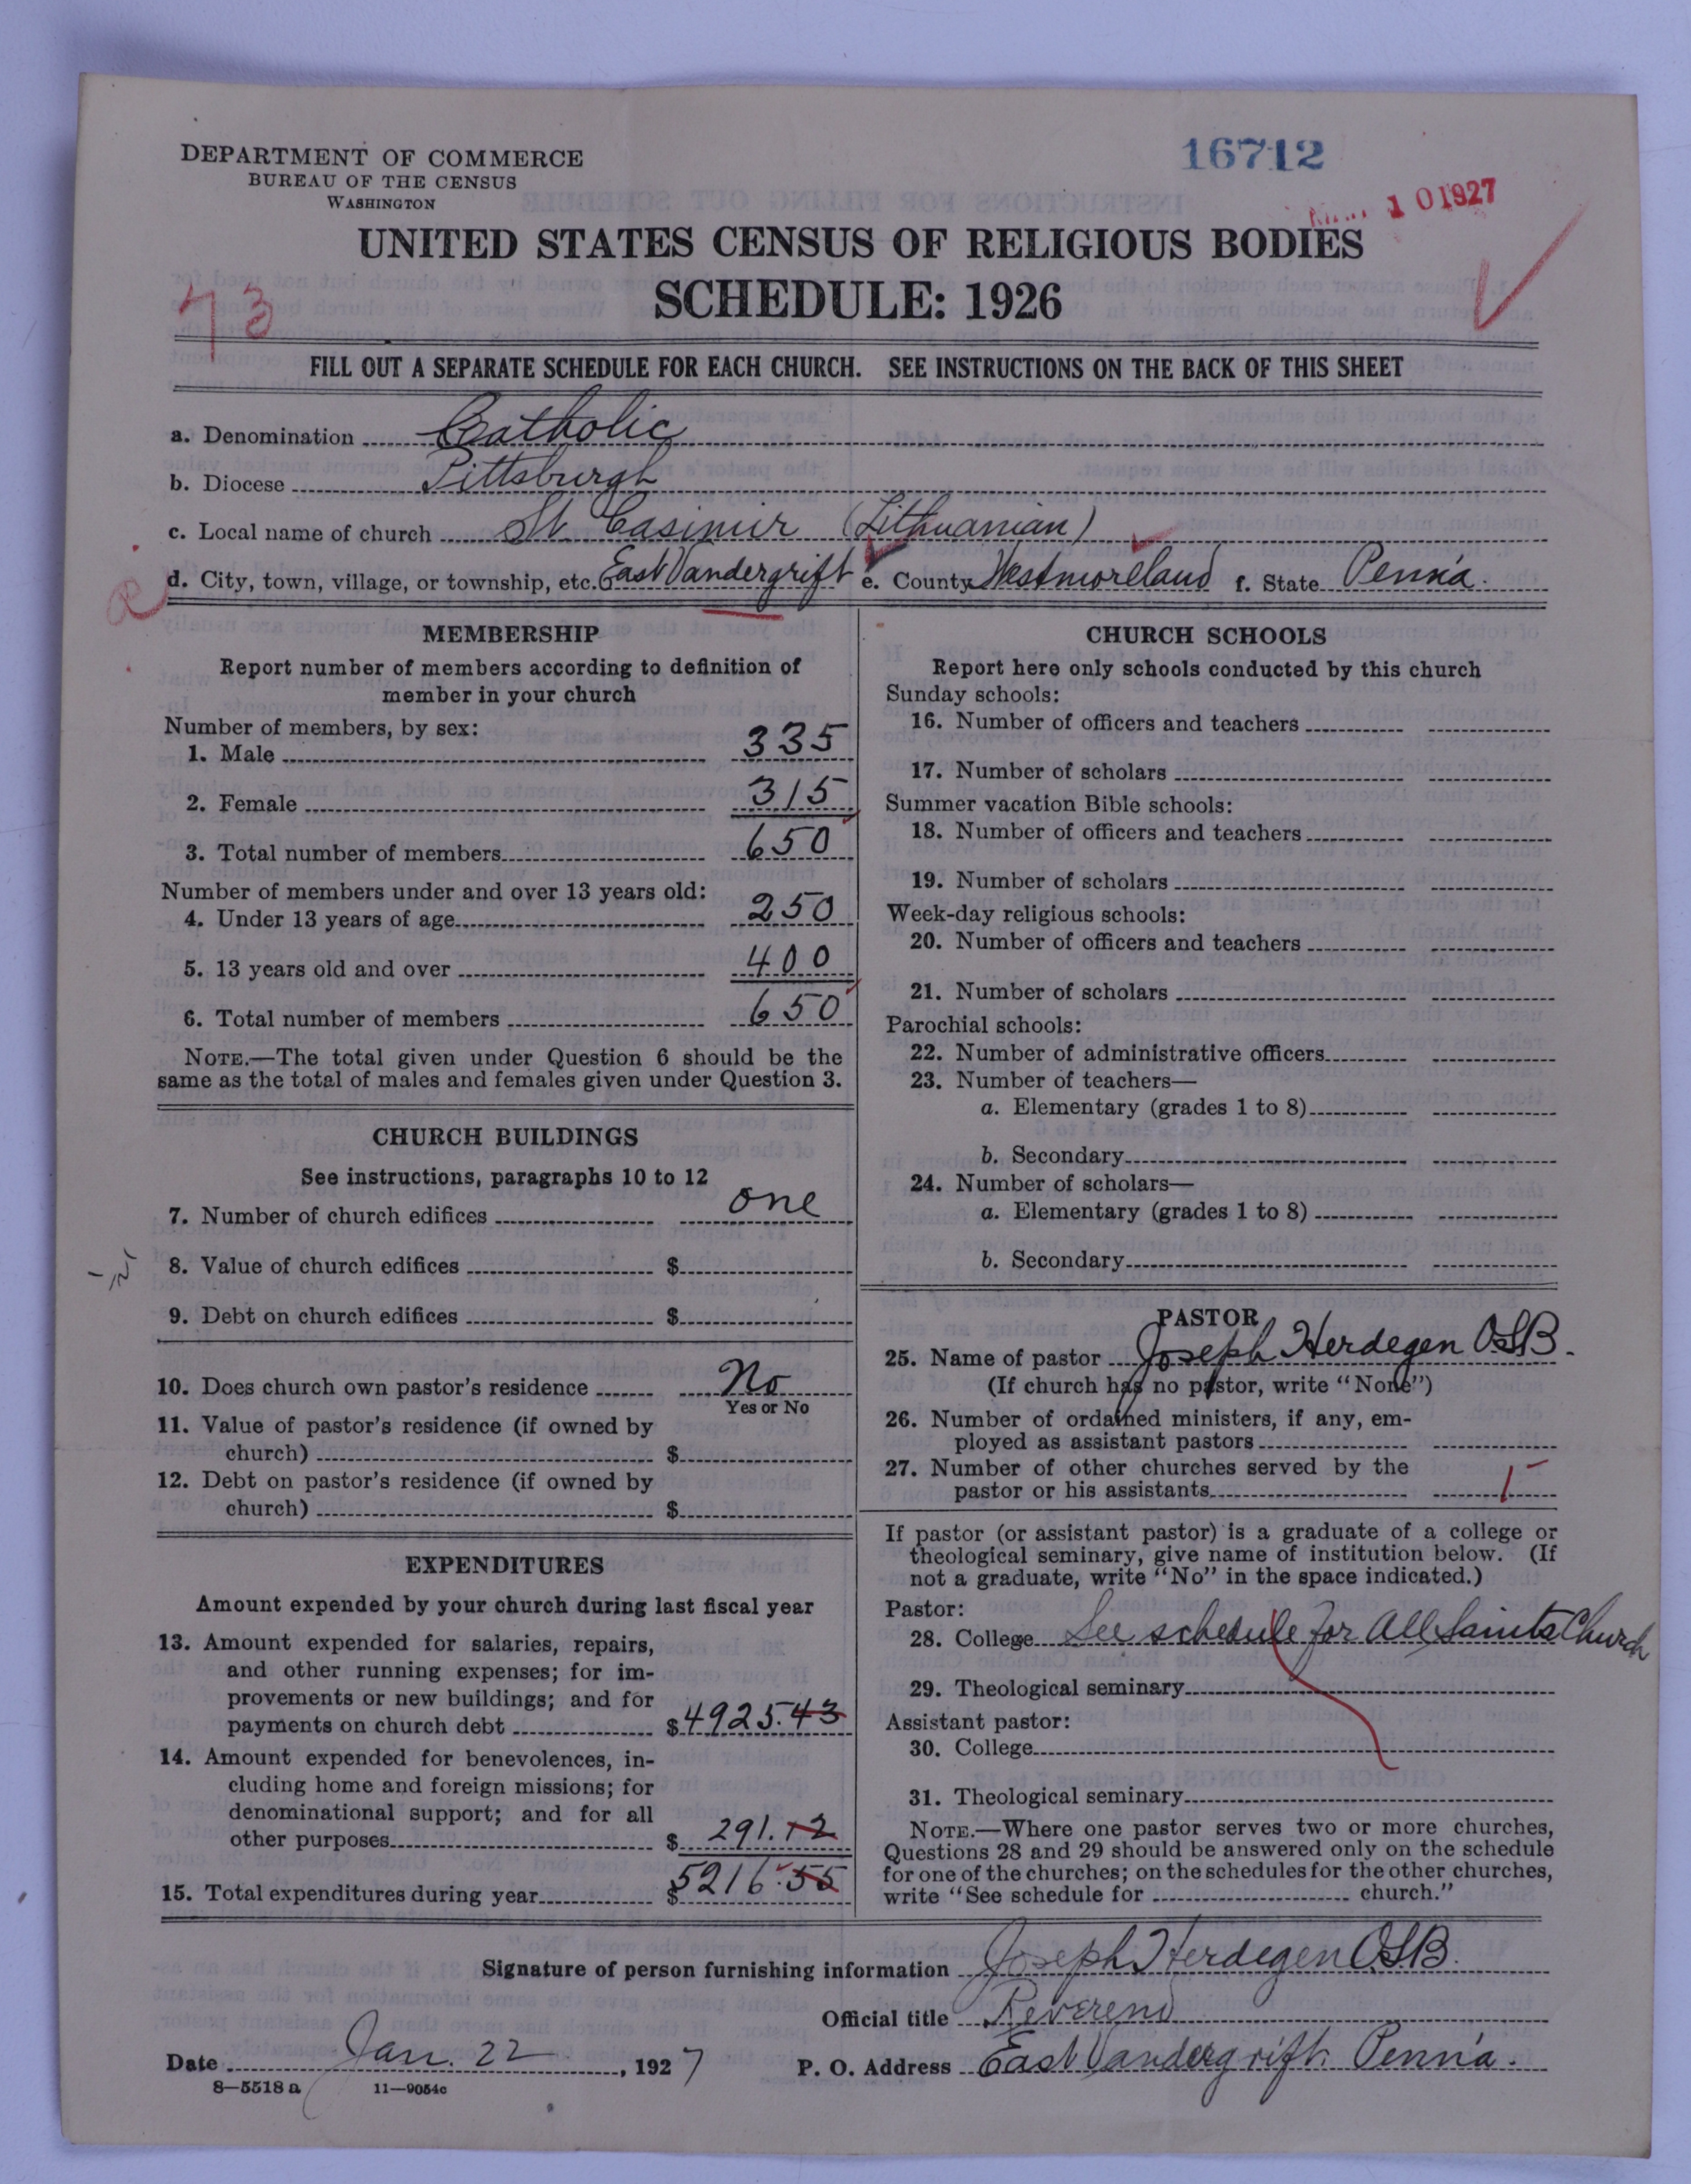 DEPARTMENT OF COMMERCE
BUREAU OF THE CENSUS
WASHINGTON
16712
10 1927
UNITED STATES CENSUS OF RELIGIOUS BODIES
SCHEDULE: 1926
73
FILL OUT A SEPARATE SCHEDULE FOR EACH CHURCH. SEE INSTRUCTIONS ON THE BACK OF THIS SHEET
a. Denomination Catholic
b. Diocese Pittsburgh
c. Local name of church St. Casimir (Lithuanian)
d. City, town, village, or township, etc. East Vandergrift e. County Westmoreland f. State Penn'a.
MEMBERSHIP
Report number of members according to definition of
member in your church
Number of members, by sex:
1. Male 335
2. Female 315
3. Total number of members 650
Number of members under and over 13 years old:
4. Under 13 years of age 250
5. 13 years old and over 400
6. Total number of members 650
NOTE.—The total given under Question 6 should be the
same as the total of males and females given under Question 3.
CHURCH BUILDINGS
See instructions, paragraphs 10 to 12
7. Number of church edifices one
8. Value of church edifices $
9. Debt on church edifices $
10. Does church own pastor's residence No
Yes or No
11. Value of pastor's residence (if owned by
church) $
12. Debt on pastor's residence (if owned by
church) $
EXPENDITURES
Amount expended by your church during last fiscal year
13. Amount expended for salaries, repairs,
and other running expenses; for im-
provements or new buildings; and for
payments on church debt $4925.43
14. Amount expended for benevolences, in-
cluding home and foreign missions; for
denominational support; and for all
other purposes $ 291.12
15. Total expenditures during year $5216.55
CHURCH SCHOOLS
Report here only schools conducted by this church
Sunday schools:
16. Number of officers and teachers
17. Number of scholars
Summer vacation Bible schools:
18. Number of officers and teachers
19. Number of scholars
Week-day religious schools:
20. Number of officers and teachers
21. Number of scholars
Parochial schools:
22. Number of administrative officers
23. Number of teachers—
a. Elementary (grades 1 to 8)
b. Secondary
24. Number of scholars—
a. Elementary (grades 1 to 8)
b. Secondary
PASTOR
25. Name of pastor Joseph Herdegen OSB.
(If church has no pastor, write "None")
26. Number of ordained ministers, if any, em-
ployed as assistant pastors
27. Number of other churches served by the
pastor or his assistants 1
If pastor (or assistant pastor) is a graduate of a college or
theological seminary, give name of institution below. (If
not a graduate, write "No" in the space indicated.)
Pastor:
28. College See schedule for All Saints Church
29. Theological seminary
Assistant pastor:
30. College
31. Theological seminary
NOTE.—Where one pastor serves two or more churches,
Questions 28 and 29 should be answered only on the schedule
for one of the churches; on the schedules for the other churches,
write "See schedule for church."
Signature of person furnishing information Joseph Herdegen O.S.B.
Official title Reverend
Date Jan. 22, 1927 P. O. Address East Vandergrift. Penn'a.
8—5518 a 11—9054c